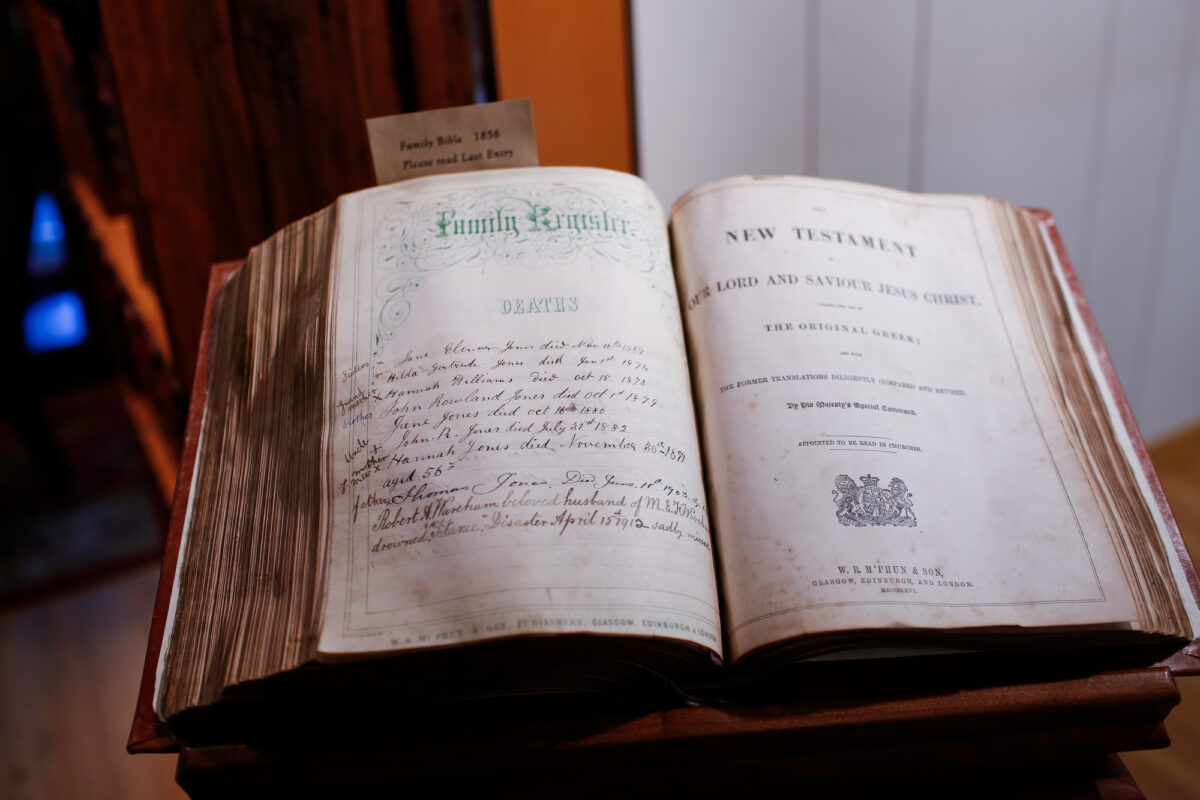 Family Bible 1856
Please read Last Entry
Family Register.
DEATHS
Sisters - Jane Elenor Jones died Nov 10th 1869
" Hilda Gertrude Jones died Jan 1st 1874
Hannah Williams died oct 15 1878
brother John Rowland Jones died oct 1st 1879
Jane Jones died oct 16th 1880
Uncle John R. Jones died July 31st 1882
mother Hannah Jones died November 30th 1899
aged 56
father Thomas Jones, Died June 18th
Robert A Wareham beloved husband of M.E.
drowned "Titanic" Disaster April 15th 1912 sadly
W. R. McPHUN & SON, PUBLISHERS, GLASGOW, EDINBURGH & LONDON
THE
NEW TESTAMENT
OF
OUR LORD AND SAVIOUR JESUS CHRIST.
TRANSLATED OUT OF
THE ORIGINAL GREEK;
AND WITH
THE FORMER TRANSLATIONS DILIGENTLY COMPARED AND REVISED,
By His Majesty's Special Command.
APPOINTED TO BE READ IN CHURCHES.
W. R. McPHUN & SON,
GLASGOW, EDINBURGH, AND LONDON.